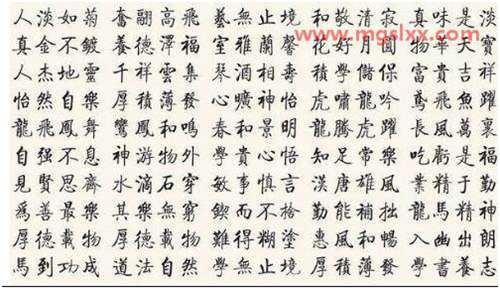 人淡如菊 奮翮高飛 藝無止境 和敬清寂 真味是淡
www.mgslxx.com
真金不鍍 養德澤福 室雅蘭馨 花好月圓 物華天寶
人杰地靈 千祥雲集 琴酒相壽 積學儲 富貴吉祥
怡然自樂 厚積薄發 心曠神怡 虎嘯龍吟 鳶飛魚躍
龍飛鳳舞 鸞鳳和鳴 春和景明 龍騰虎躍 長風萬裏
自强不息 神游物外 學貴心悟 知足常樂 吃虧是福
見賢思齊 水滴石穿 敏事慎言 漢唐雄風 業精于勤
爲善最樂 其樂無窮 鍥而不捨 勤能補拙 龍馬精神
厚德載物 厚德載物 難得糊塗 惠風和暢 入幽出朗
馬到功成 道法自然 學無止境 厚積薄發 學書養志